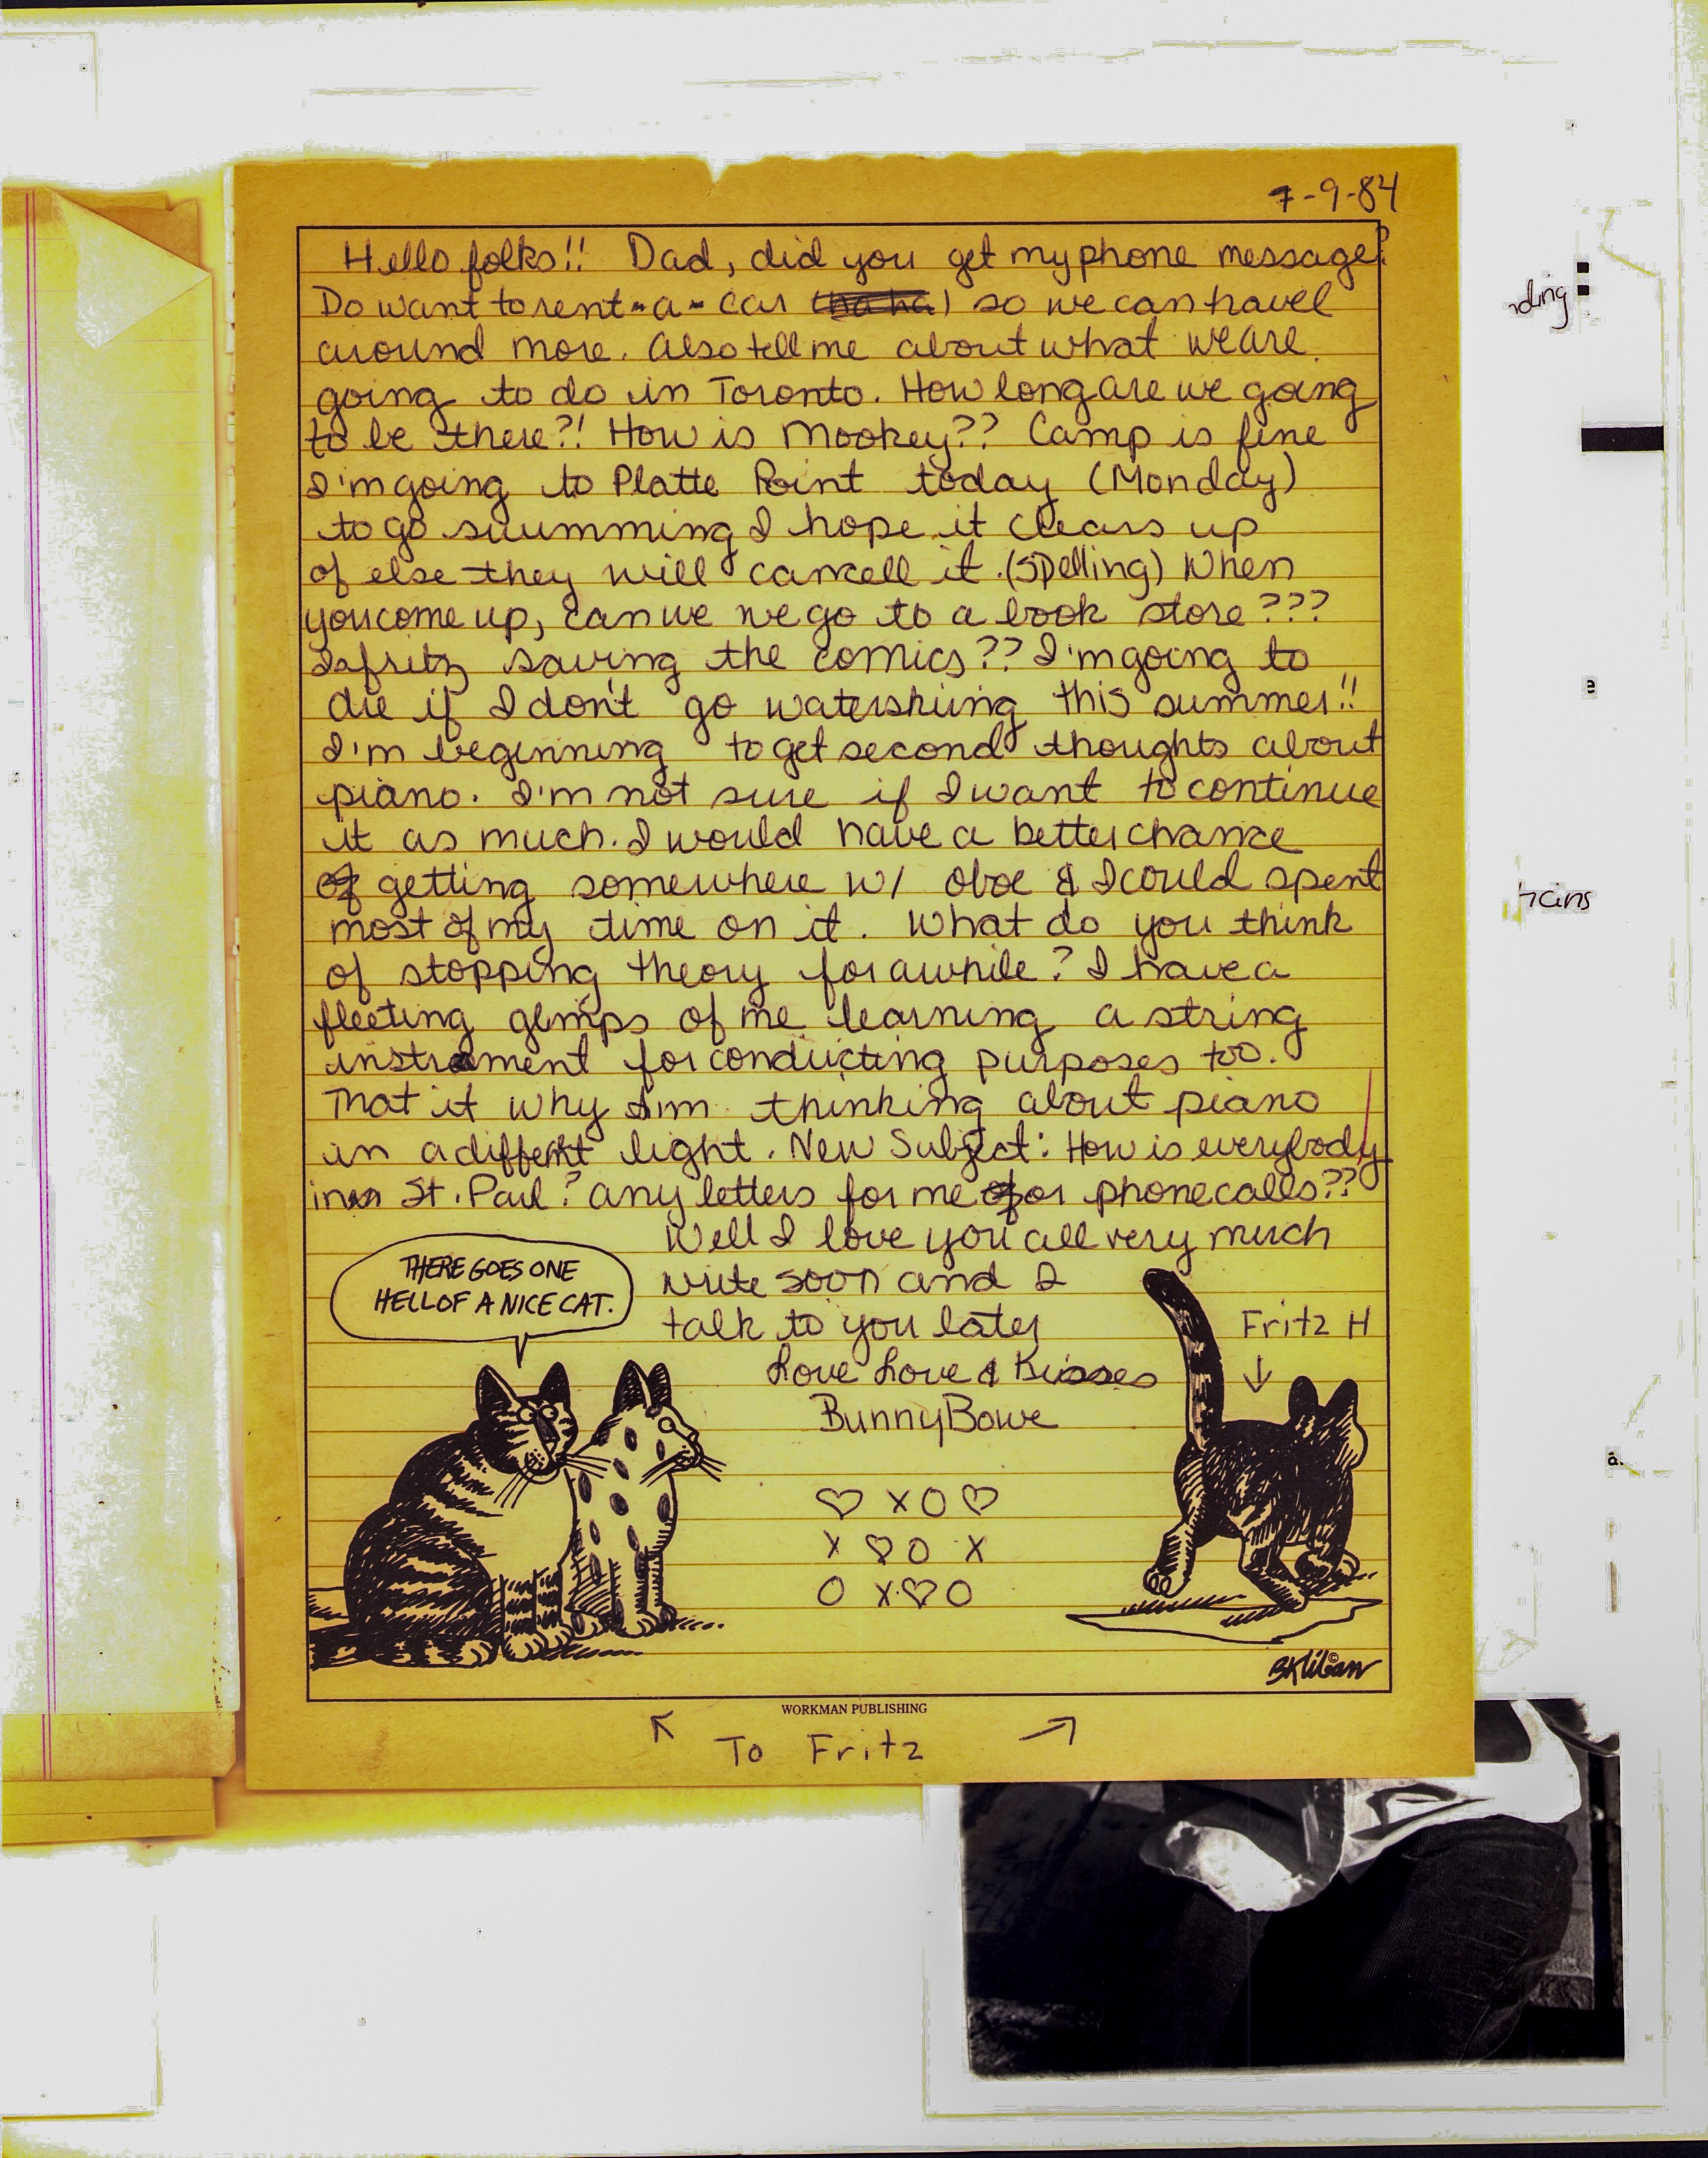 7-9-84
Hello folks!! Dad, did you get my phone message?
Do want to rent-a-car (ha ha) so we can travel
around more. Also tell me about what we are
going to do in Toronto. How long are we going
to be there?! How is Mookey?? Camp is fine
I'm going to Platte Point today (Monday)
to go swimming I hope it clears up
of else they will cancell it. (spelling) When
you come up, can we we go to a book store???
Is fritz saving the comics?? I'm going to
die if I don't go waterskiing this summer!!
I'm beginning to get second thoughts about
piano. I'm not sure if I want to continue
it as much. I would have a better chance
of getting somewhere w/ oboe & I could spent
most of my time on it. What do you think
of stopping theory for awhile? I have a
fleeting glimps of me learning a string
instrument for conducting purposes too.
That it why I'm thinking about piano
in a different light. New Subject: How is everybody
in St. Paul? any letters for me or phone calls??
Well I love you all very much
write soon and I
talk to you later
Love Love & Kisses
Bunny Bowe
THERE GOES ONE
HELL OF A NICE CAT.
Fritz H
↓
♡ X O ♡
X ♡ O X
O X ♡ O
B Kliban ©
WORKMAN PUBLISHING
↖ To Fritz ↗